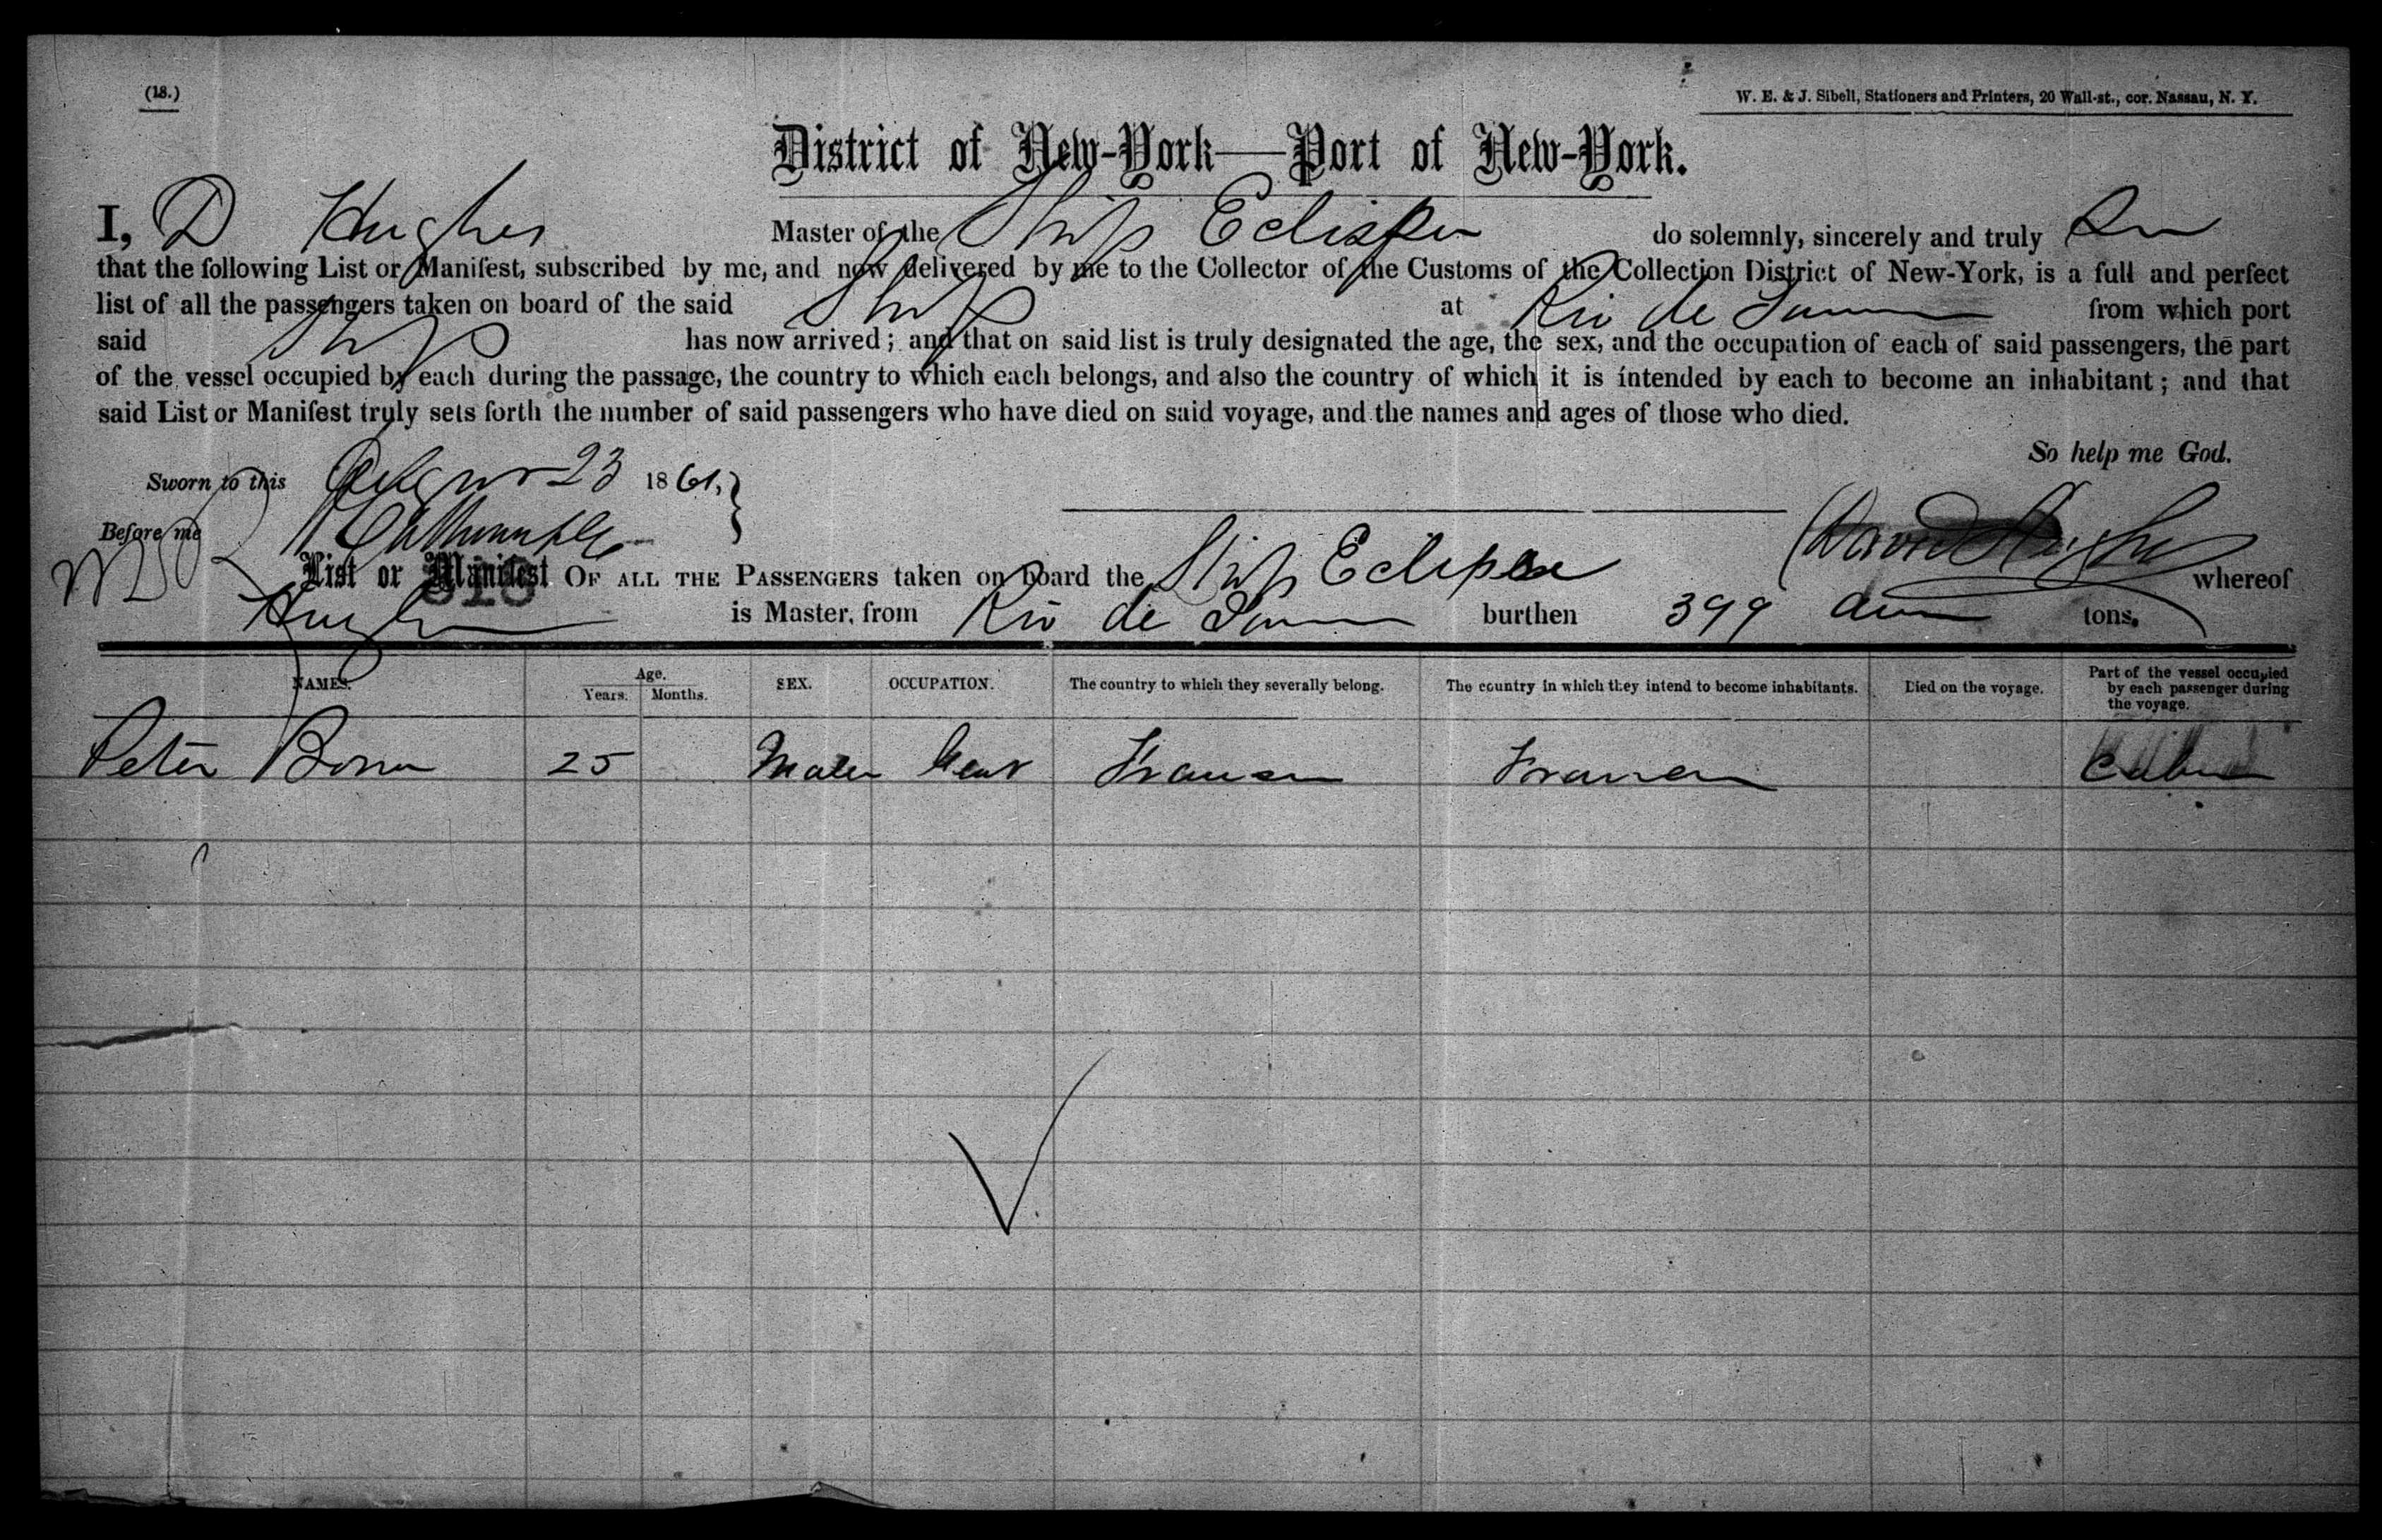 (18.)
W. E. & J. Sibell, Stationers and Printers, 20 Wall-st., cor. Nassau, N. Y.
District of New-York—Port of New-York.
I, D Hughes Master of the Ship Eclipse do solemnly, sincerely and truly
that the following List or Manifest, subscribed by me, and now delivered by me to the Collector of the Customs of the Collection District of New-York, is a full and perfect
list of all the passengers taken on board of the said Ship at Rio de from which port
said Ship has now arrived; and that on said list is truly designated the age, the sex, and the occupation of each of said passengers, the part
of the vessel occupied by each during the passage, the country to which each belongs, and also the country of which it is intended by each to become an inhabitant; and that
said List or Manifest truly sets forth the number of said passengers who have died on said voyage, and the names and ages of those who died.
So help me God.
Sworn to this 23 1861,
Before me
David Hughes
List or Manifest OF ALL THE PASSENGERS taken on board the Ship Eclipse whereof
Hughes is Master, from Rio de burthen 399 tons.
NAMES. Age. Years. Months. SEX. OCCUPATION. The country to which they severally belong. The country in which they intend to become inhabitants. Died on the voyage. Part of the vessel occupied by each passenger during the voyage.
Peter 25 Male France France Cabin